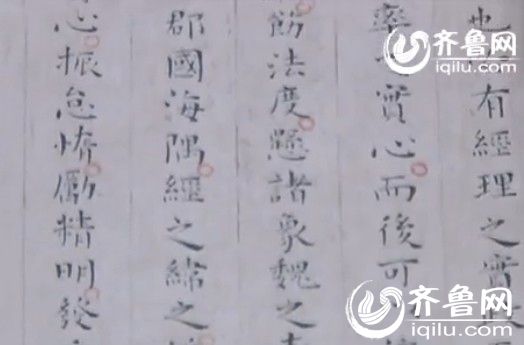 也
有經理之實
率
實心而後可
飭法度懸諸象魏之
郡國海隅經之緯之
心振怠惰勵精明發
齐鲁网
iqilu.com
齐鲁网
iqilu.com